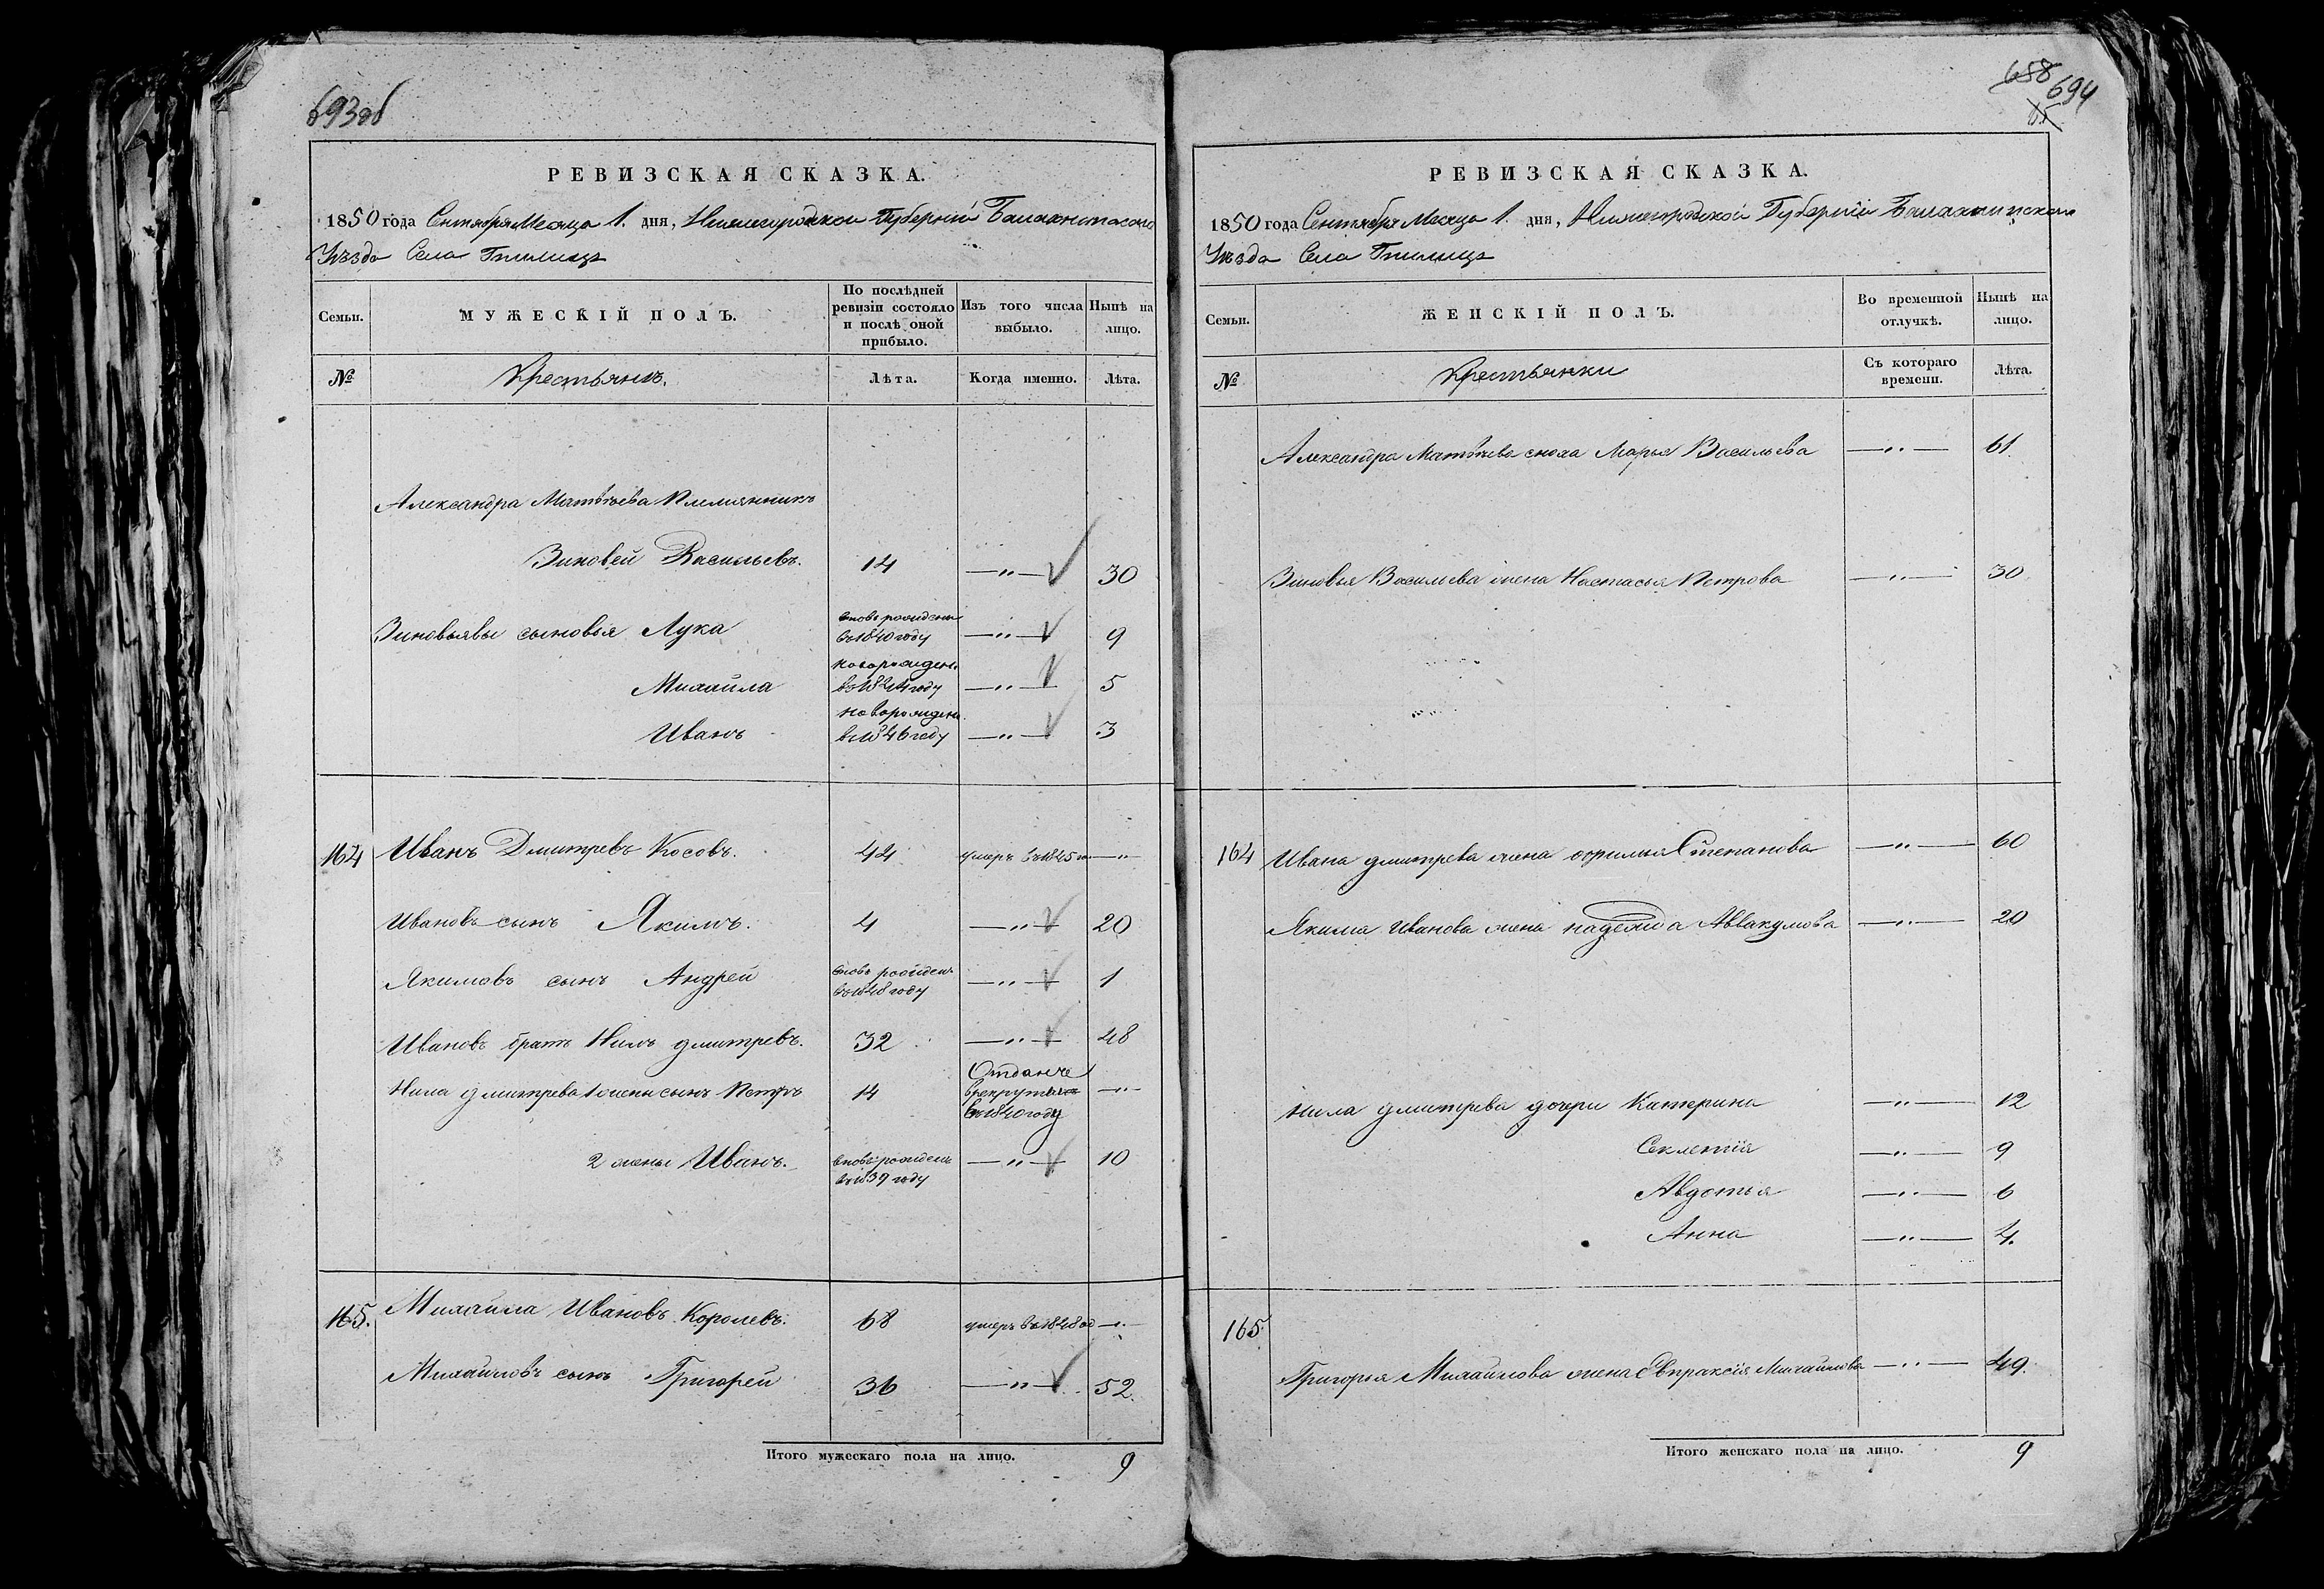 693об
РЕВИЗСКАЯ СКАЗКА.
1850 года Сентября Месяца 1. дня, Нижегородской Губернии Балахнинскаго
Уѣзда Села
Семьи.
МУЖЕСКІЙ ПОЛЪ.
По послѣдней ревизіи состояло и послѣ оной прибыло.
Изъ того числа выбыло.
Нынѣ на лицо.
№
Крестьянъ.
Лѣта.
Когда именно.
Лѣта.
Александра Матвѣева Племянникъ
Зиновей Васильевъ. 14 —„— 30
Зиновьявы сыновья Лука вновь рожденъ въ 1840 году —„— 9
Михайла новорожден. въ 1844 году —„— 5
Иванъ новорожден. въ 1846 году —„— 3
164 Иванъ Дмитревъ Косовъ. 44 умеръ въ 1845 —„—
Ивановъ сынъ Якимъ. 4 —„— 20
Якимовъ сынъ Андрей вновь рожденъ въ 1848 году —„— 1
Ивановъ братъ Нилъ дмитревъ. 32 —„— 48
Нила дмитрева 1 жены сынъ Петръ 14 въ 1840 году —„—
2 жены Иванъ. вновь рожденъ въ 1839 году —„— 10
165. Михайла Ивановъ Королевъ. 68 умеръ въ 1848 —„—
Михайловъ сынъ Григорей 36 —„— 52.
Итого мужескаго пола на лицо. 9
658
694
РЕВИЗСКАЯ СКАЗКА.
1850 года Сентября Месяца 1. дня, Нижегородской Губерніи Балахнинскаго
Уѣзда Села
Семьи.
ЖЕНСКІЙ ПОЛЪ.
Во временной отлучкѣ.
Нынѣ на лицо.
№
Крестьянки
Съ котораго времени.
Лѣта.
Александра Матвѣева сноха Марья Васильева —„— 61
Зиновья Васильева жена Настасья Петрова —„— 30
164 Ивана дмитрева жена Степанова —„— 60
Якима Иванова жена надежда Аввакумова —„— 20
Нила дмитрева дочери Катерина —„— 12
Секлетія —„— 9
Авдотья —„— 6
Анна —„— 4.
165.
Григорья Михайлова жена Евпраксія Михайлова —„— 49.
Итого женскаго пола на лицо. 9